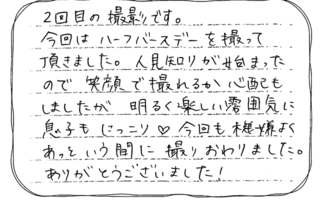 2回目の撮影です。
今回はハーフバースデーを撮って
頂きました。人見知りが始まった
ので笑顔で撮れるか心配も
しましたが明るく楽しい雰囲気に
息子もにっこり♡今回も機嫌よく
あっという間に撮りおわりました。
ありがとうございました!